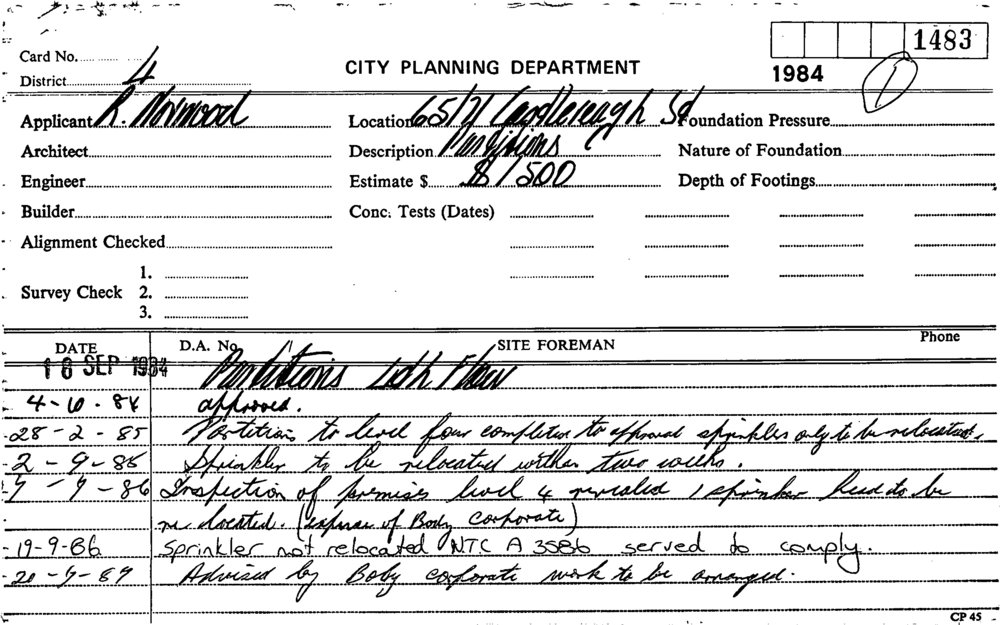 1483
Card No.
4
District
CITY PLANNING DEPARTMENT
1984
1
Applicant R. Norwood
Location 65/71 Sd
Foundation Pressure
Architect
Description Partitions
Nature of Foundation
Engineer
Estimate $ 8/500
Depth of Footings
Builder
Conc. Tests (Dates)
Alignment Checked
1.
Survey Check 2.
3.
DATE D.A. No SITE FOREMAN Phone
18 SEP 1984 Partitions
4-10-84 approved.
28-2-85 Partitions to level four completion to approval sprinkler only to be relocated.
2-9-85 Sprinkler to be relocated within two weeks.
7-7-86 Inspection of premises level 4 revealed 1 sprinker head to be
re located. (expense of Body corporate)
19-9-86 Sprinkler not relocated NTC A 3586 served to comply.
20-7-87 Advised by Body corporate work to be arranged.
CP 45